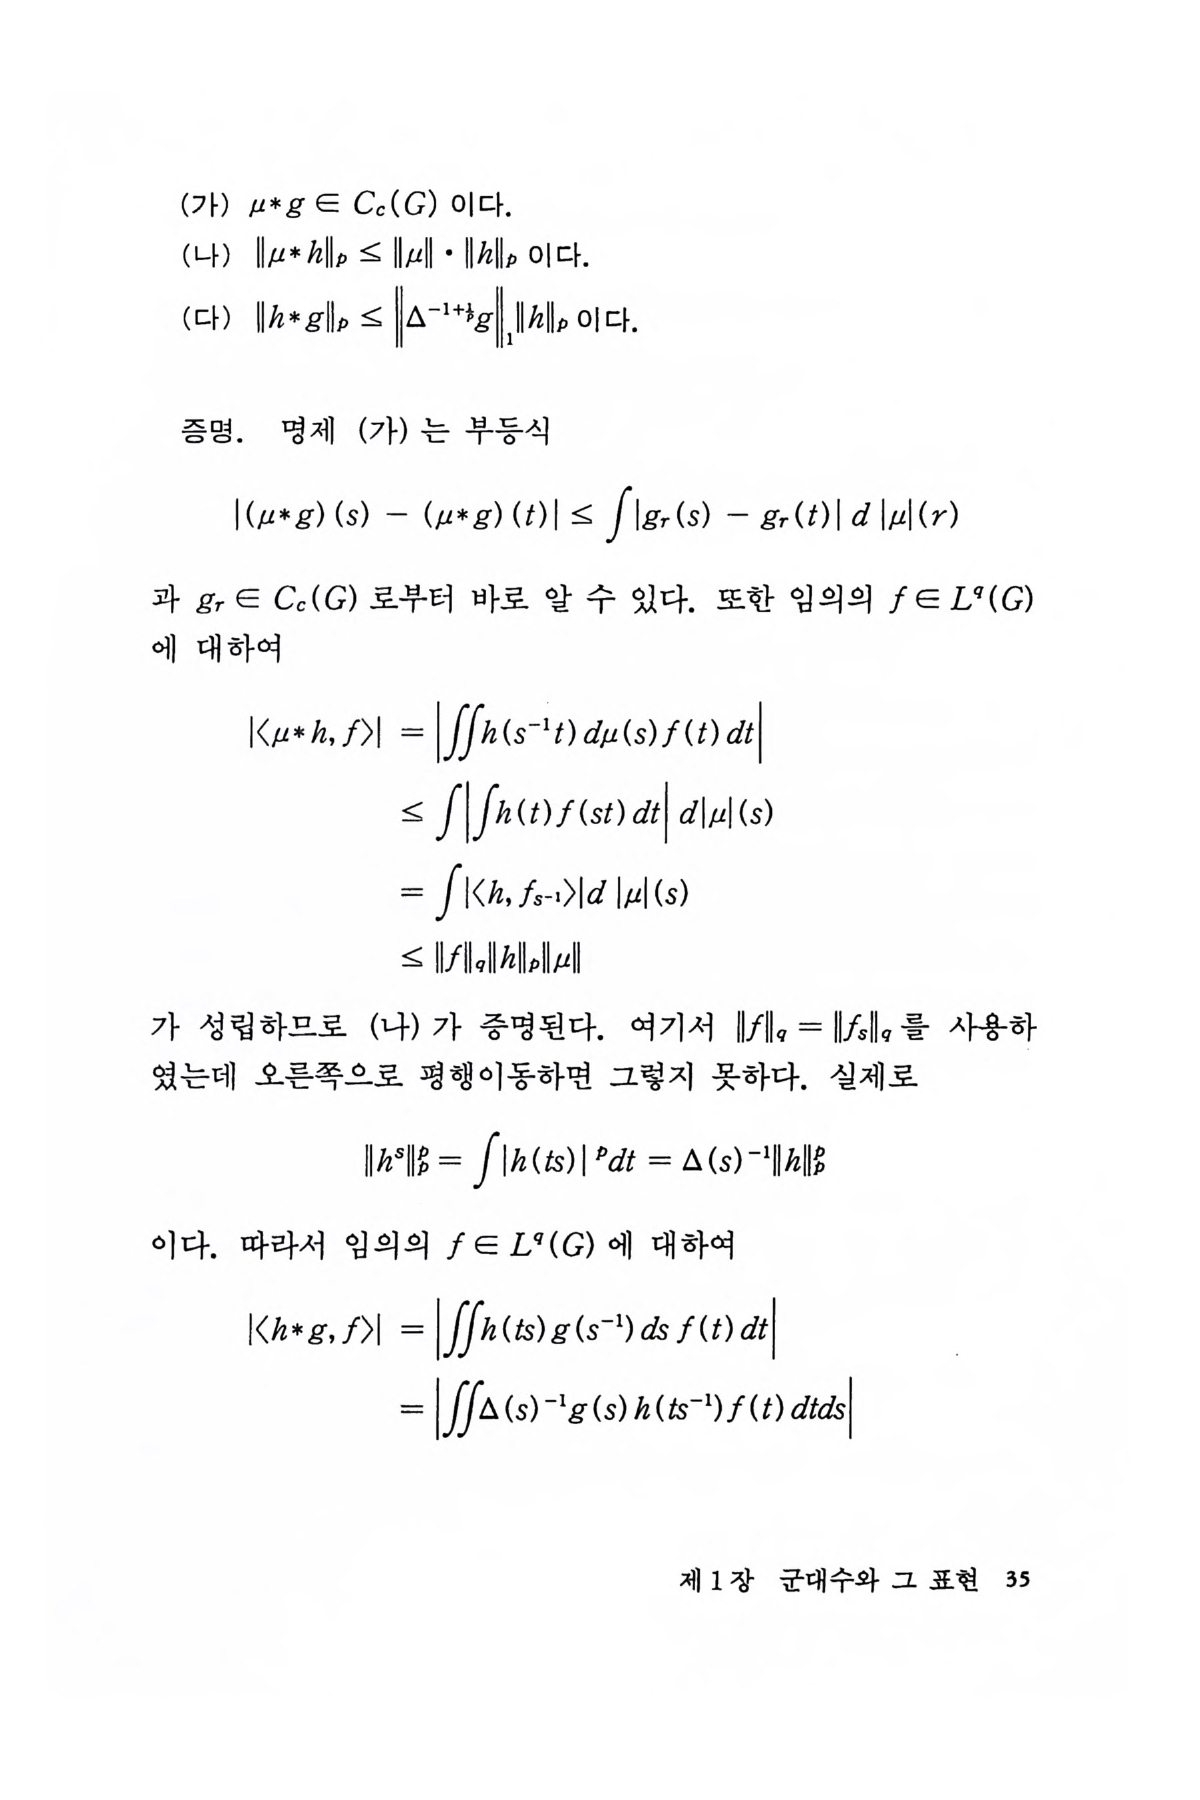 (가) μ*g ∈ C_c(G) 이다.
(나) ‖μ*h‖_p ≤ ‖μ‖ · ‖h‖_p 이다.
(다) ‖h*g‖_p ≤ ‖Δ^{-1+1/p}g‖_1‖h‖_p 이다.
증명. 명제 (가) 는 부등식
|(μ*g)(s) − (μ*g)(t)| ≤ ∫|g_r(s) − g_r(t)| d |μ|(r)
과 g_r ∈ C_c(G) 로부터 바로 알 수 있다. 또한 임의의 f ∈ L^q(G)
에 대하여
|⟨μ*h, f⟩| = |∬h(s^{-1}t) dμ(s) f(t) dt|
≤ ∫|∫h(t) f(st) dt| d|μ|(s)
= ∫|⟨h, f_{s^{-1}}⟩|d |μ|(s)
≤ ‖f‖_q‖h‖_p‖μ‖
가 성립하므로 (나) 가 증명된다. 여기서 ‖f‖_q = ‖f_s‖_q 를 사용하
였는데 오른쪽으로 평행이동하면 그렇지 못하다. 실제로
‖h^s‖_p^p = ∫|h(ts)|^p dt = Δ(s)^{-1}‖h‖_p^p
이다. 따라서 임의의 f ∈ L^q(G) 에 대하여
|⟨h*g, f⟩| = |∬h(ts) g(s^{-1}) ds f(t) dt|
= |∬Δ(s)^{-1}g(s) h(ts^{-1}) f(t) dtds|
제 1 장 군대수와 그 표현 35